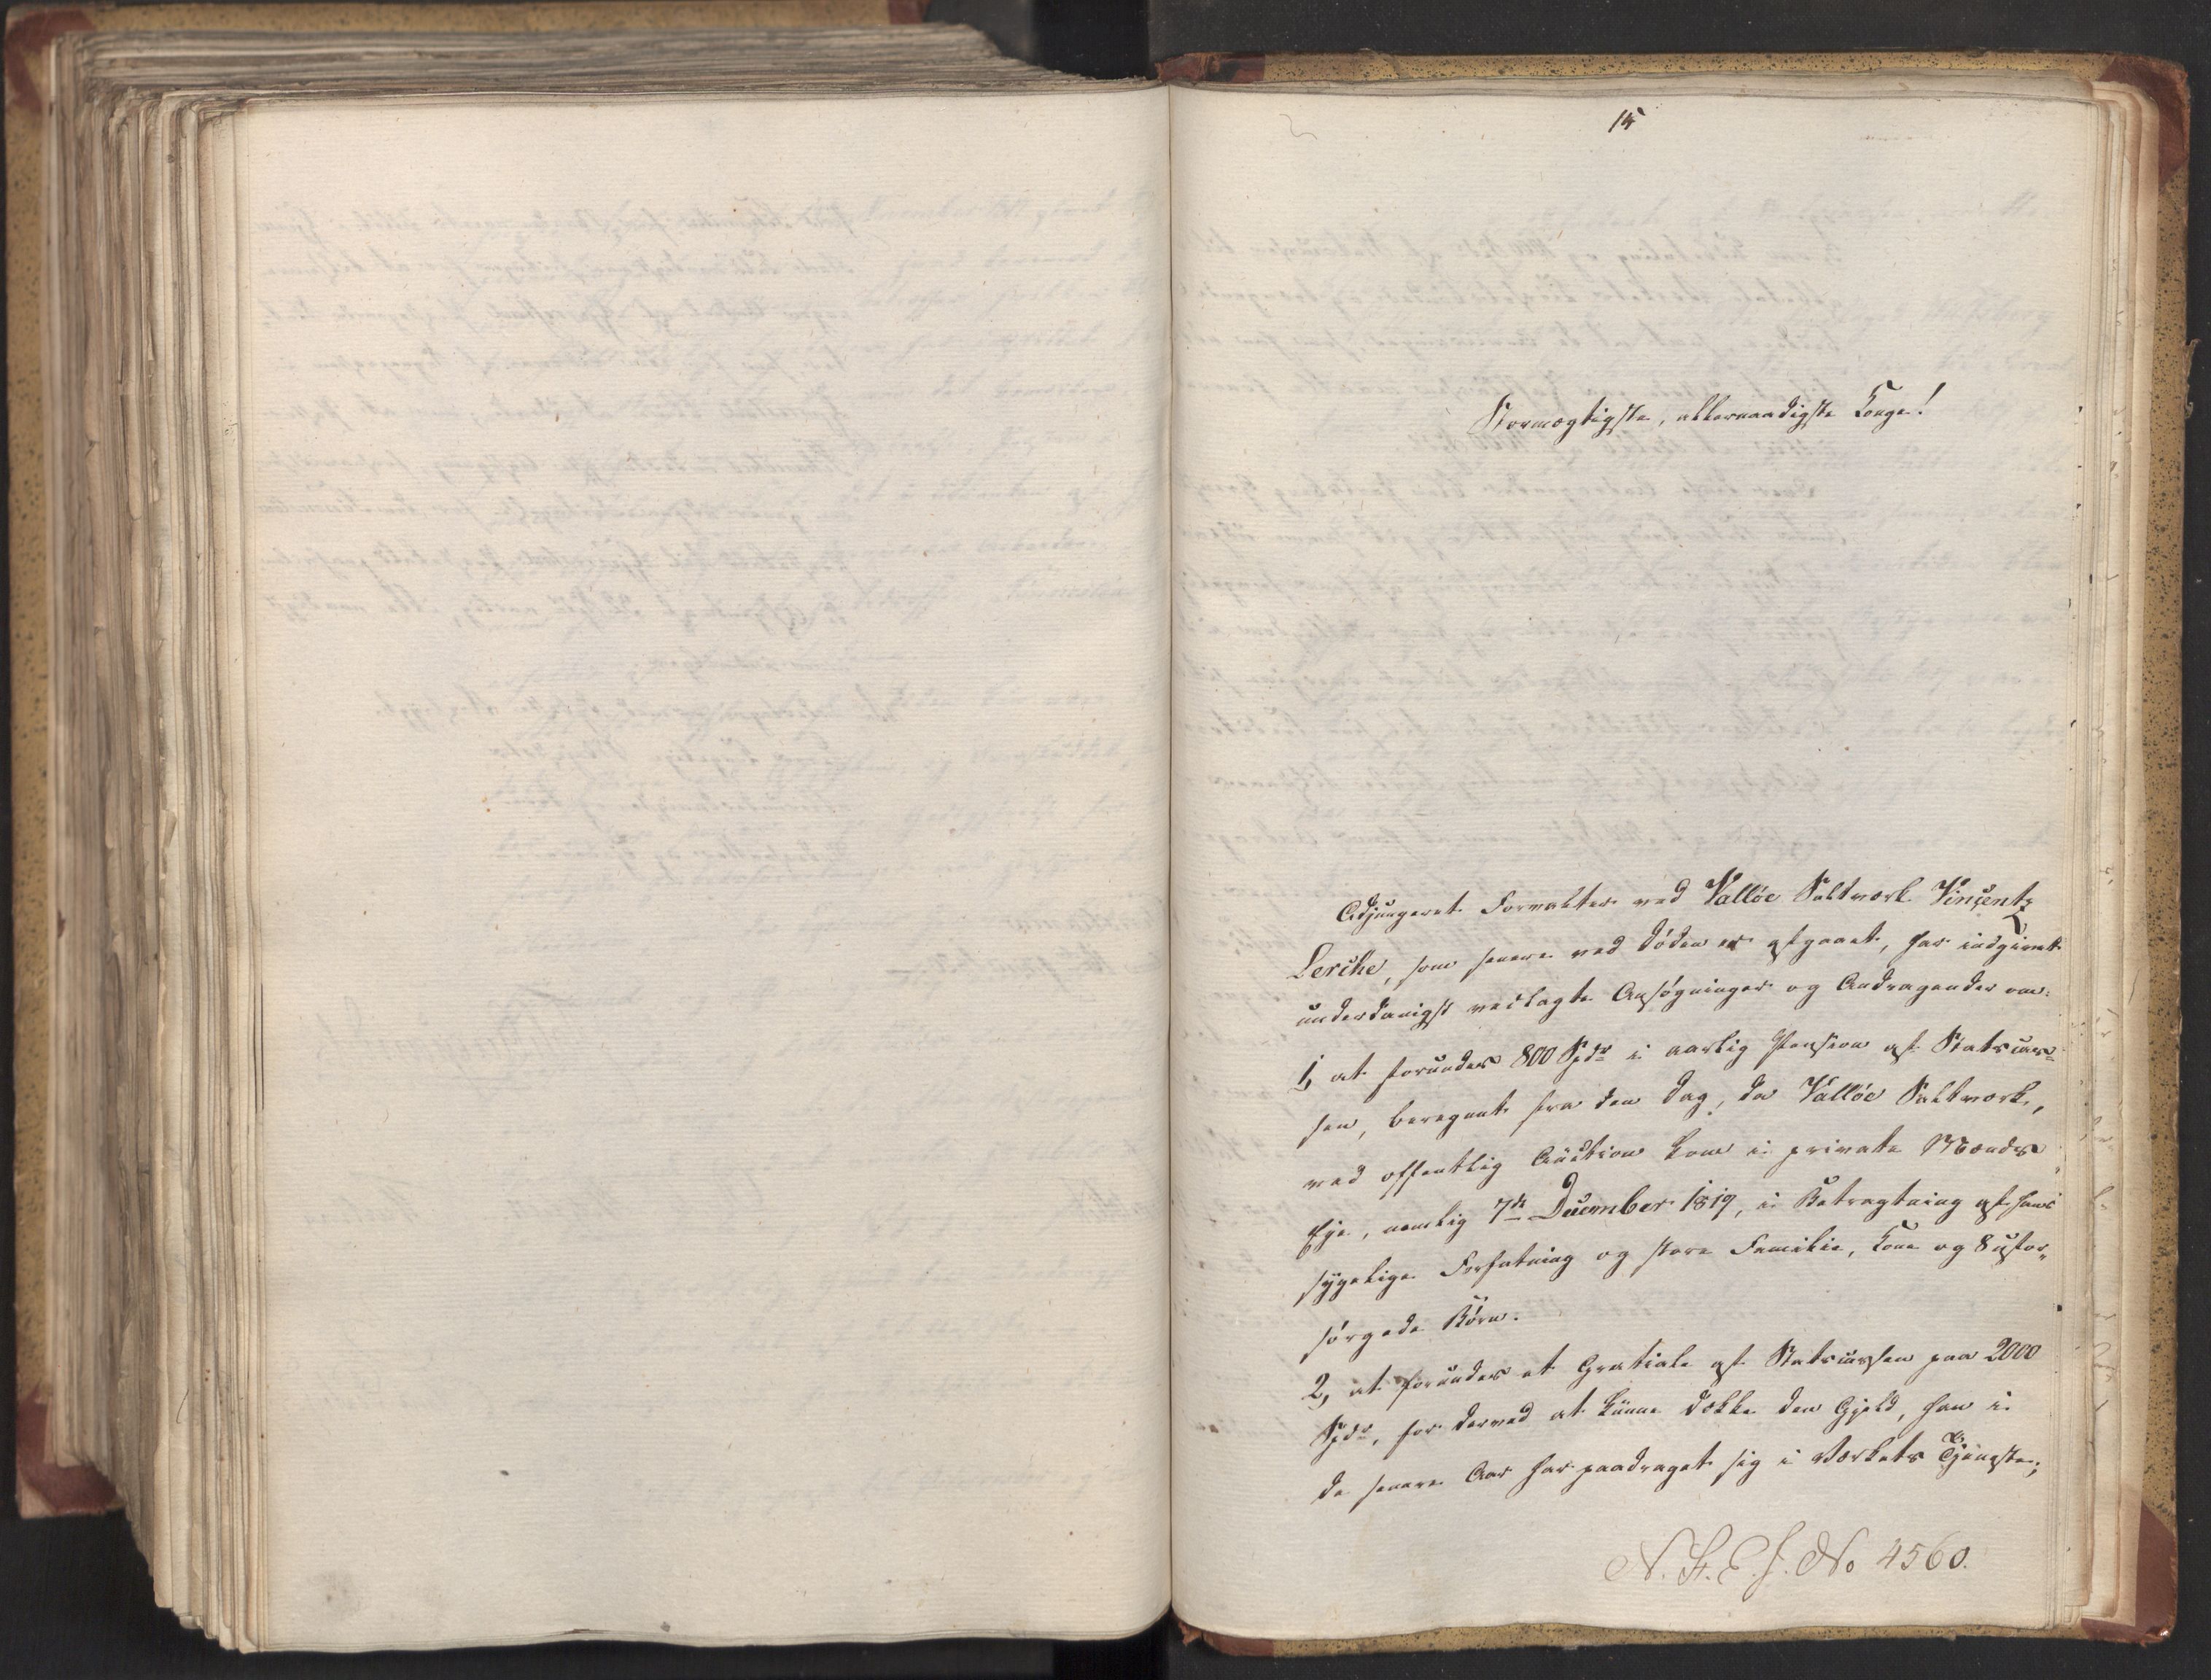 15
Stormægtigste, allernaadigste Konge!
Adjungeret Forvalter ved Valløe Saltværk Vinçentz
Lerche, som senere ved Døden er afgaaet, har indgivet
underdanigst vedlagte Ansøgninger og Andragender om:
1, at forundes 800 Spdr i aarlig Pension af Statscas-
sen, beregnet fra den Dag, da Valløe Saltværk,
ved offentlig Auction kom i private Mænds
Eje, nemlig 7de December 1819, i Betragtning af hans
sygelige Forfatning og store Familie, Kone og 8 ufor-
sørgede Børn.
2, at forundes et Gratiale af Statscassen paa 2000
Spdr, for derved at kunne dække den Gjeld, han i
de senere Aar har paadraget sig i Værkets Tjeneste;
N. St. E. J. No 4560.